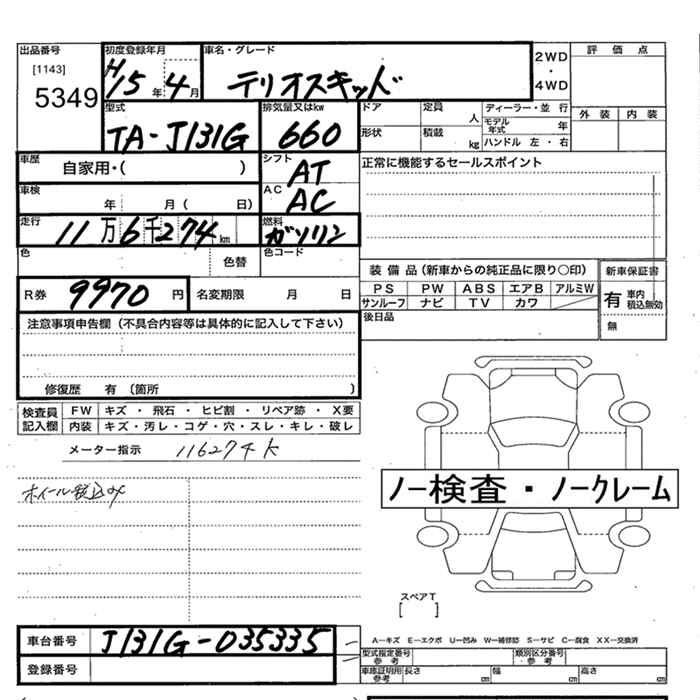 出品番号 [1143] 5349
初度登録年月 H15年4月
車名・グレード テリオスキッド
2WD ・ 4WD
評価点
外装 内装
型式 TA-J131G
排気量又はkw 660
ドア 定員 人 ディーラー・並行
モデル年式 年
形状 積載 kg ハンドル 左・右
車歴 自家用・( )
シフト AT
正常に機能するセールスポイント
車検 年 月( 日)
AC AC
走行 11万6千274km
燃料 ガソリン
色 色替 色コード
装備品(新車からの純正品に限り○印)
新車保証書
PS PW ABS エアB アルミW
サンルーフ ナビ TV カワ
有 車内積込無効
無
R券 9970円 名変期限 月 日
後日品
注意事項申告欄(不具合内容等は具体的に記入して下さい)
修復歴 有 (箇所 )
検査員記入欄
FW キズ・飛石・ヒビ割・リペア跡・X要
内装 キズ・汚レ・コゲ・穴・スレ・キレ・破レ
メーター指示 116274K
ホイール
ノー検査・ノークレーム
スペアT
[ ]
車台番号 J131G-035335
登録番号
A-キズ E-エクボ U-凹み W-補修跡 S-サビ C-腐食 XX-交換済
型式指定番号 参考 類別区分番号 参考
車庫証明用 参考 長さ cm 幅 cm 高さ cm